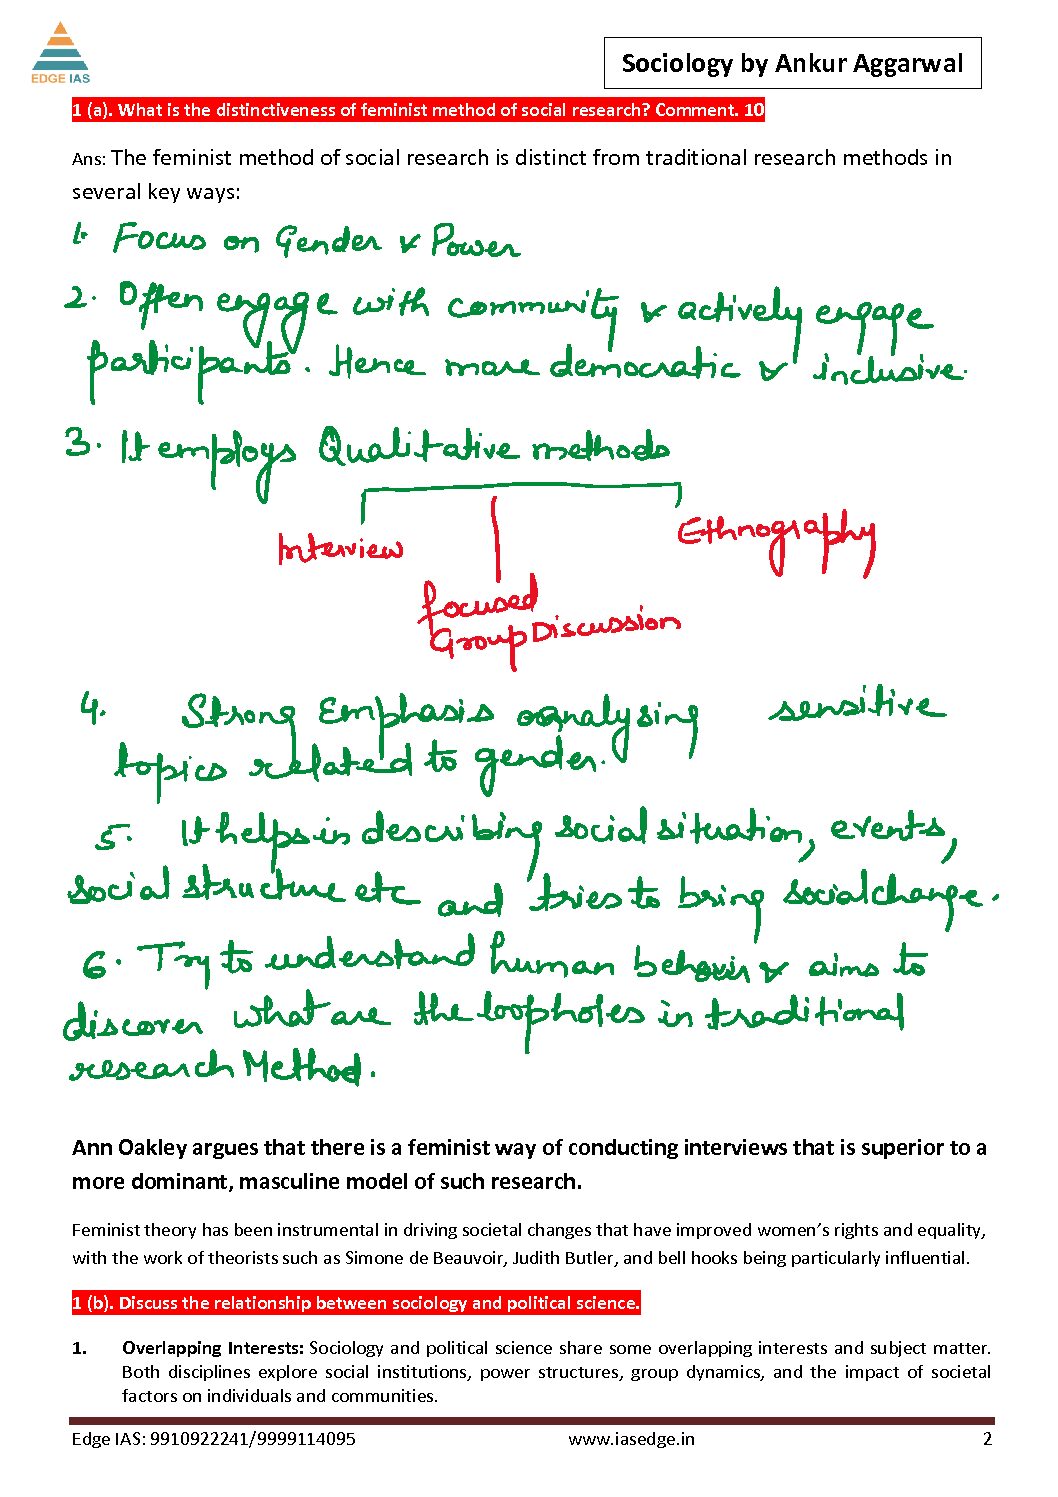 EDGE IAS
Sociology by Ankur Aggarwal
1 (a). What is the distinctiveness of feminist method of social research? Comment. 10
Ans: The feminist method of social research is distinct from traditional research methods in
several key ways:
1. Focus on Gender & Power
2. Often engage with community & actively engage
participants. Hence more democratic & inclusive.
3. It employs Qualitative methods
Interview
Ethnography
focused
Group Discussion
4. Strong Emphasis analysing sensitive
topics related to gender.
5. It helps in describing social situation, events,
social structure etc and tries to bring social change.
6. Try to understand human & aims to
discover what are the loopholes in traditional
research Method.
Ann Oakley argues that there is a feminist way of conducting interviews that is superior to a
more dominant, masculine model of such research.
Feminist theory has been instrumental in driving societal changes that have improved women’s rights and equality,
with the work of theorists such as Simone de Beauvoir, Judith Butler, and bell hooks being particularly influential.
1 (b). Discuss the relationship between sociology and political science.
1. Overlapping Interests: Sociology and political science share some overlapping interests and subject matter.
Both disciplines explore social institutions, power structures, group dynamics, and the impact of societal
factors on individuals and communities.
Edge IAS: 9910922241/9999114095 www.iasedge.in 2